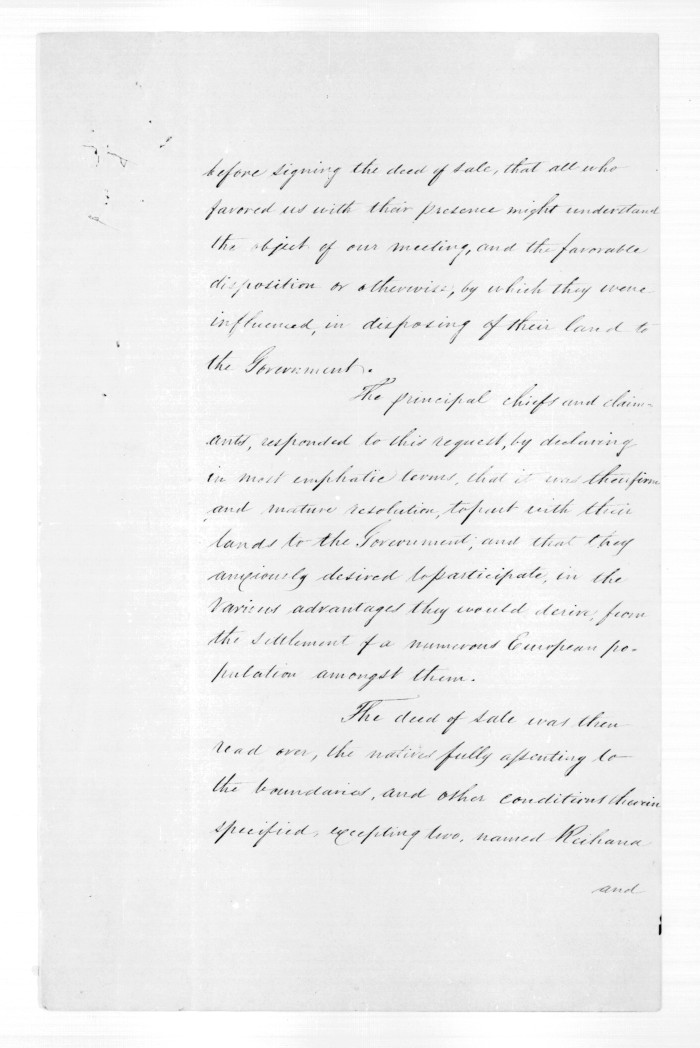 before signing the deed of sale, that all who
favored us with their presence might understand
the object of our meeting, and the favorable
disposition or otherwise, by which they were
influenced, in disposing of their land to
the Government.
The principal chiefs and claim-
ants, responded to this request, by declaring
in most emphatic terms, that it was their firm
and mature resolution, to part with their
lands to the Government; and that they
anxiously desired to participate, in the
various advantages they would derive, from
the settlement of a numerous European po-
pulation amongst them.
The deed of sale was then
read over, the natives fully assenting to
the boundaries, and other conditions therein
specified, excepting two, named Reihana
and